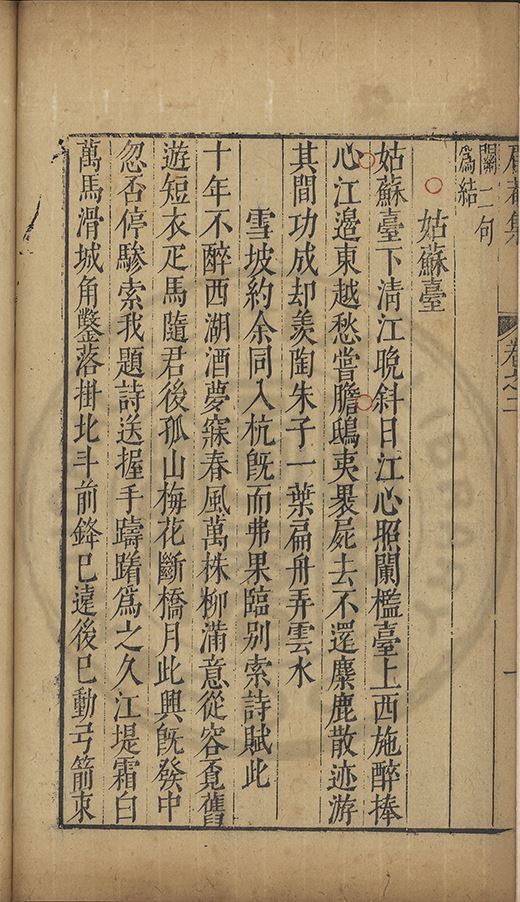 集
卷之二
一
闢二句
爲結
姑蘇臺
姑蘇臺下淸江晚斜日江心照闌檻臺上西施醉捧
心江邊東越愁嘗膽鴟夷褁屍去不還麋鹿散迹游
其間功成却羨陶朱子一葉扁舟弄雲水
雪坡約余同入杭旣而弗果臨别索詩賦此
十年不醉西湖酒夢寐春風萬株柳滿意從容覔舊
遊短衣疋馬隨君後孤山梅花斷橋月此興旣發中
忽否停驂索我題詩送握手躊躇爲之久江堤霜白
萬馬滑城角鑿落掛北斗前鋒已遠後已動弓箭束